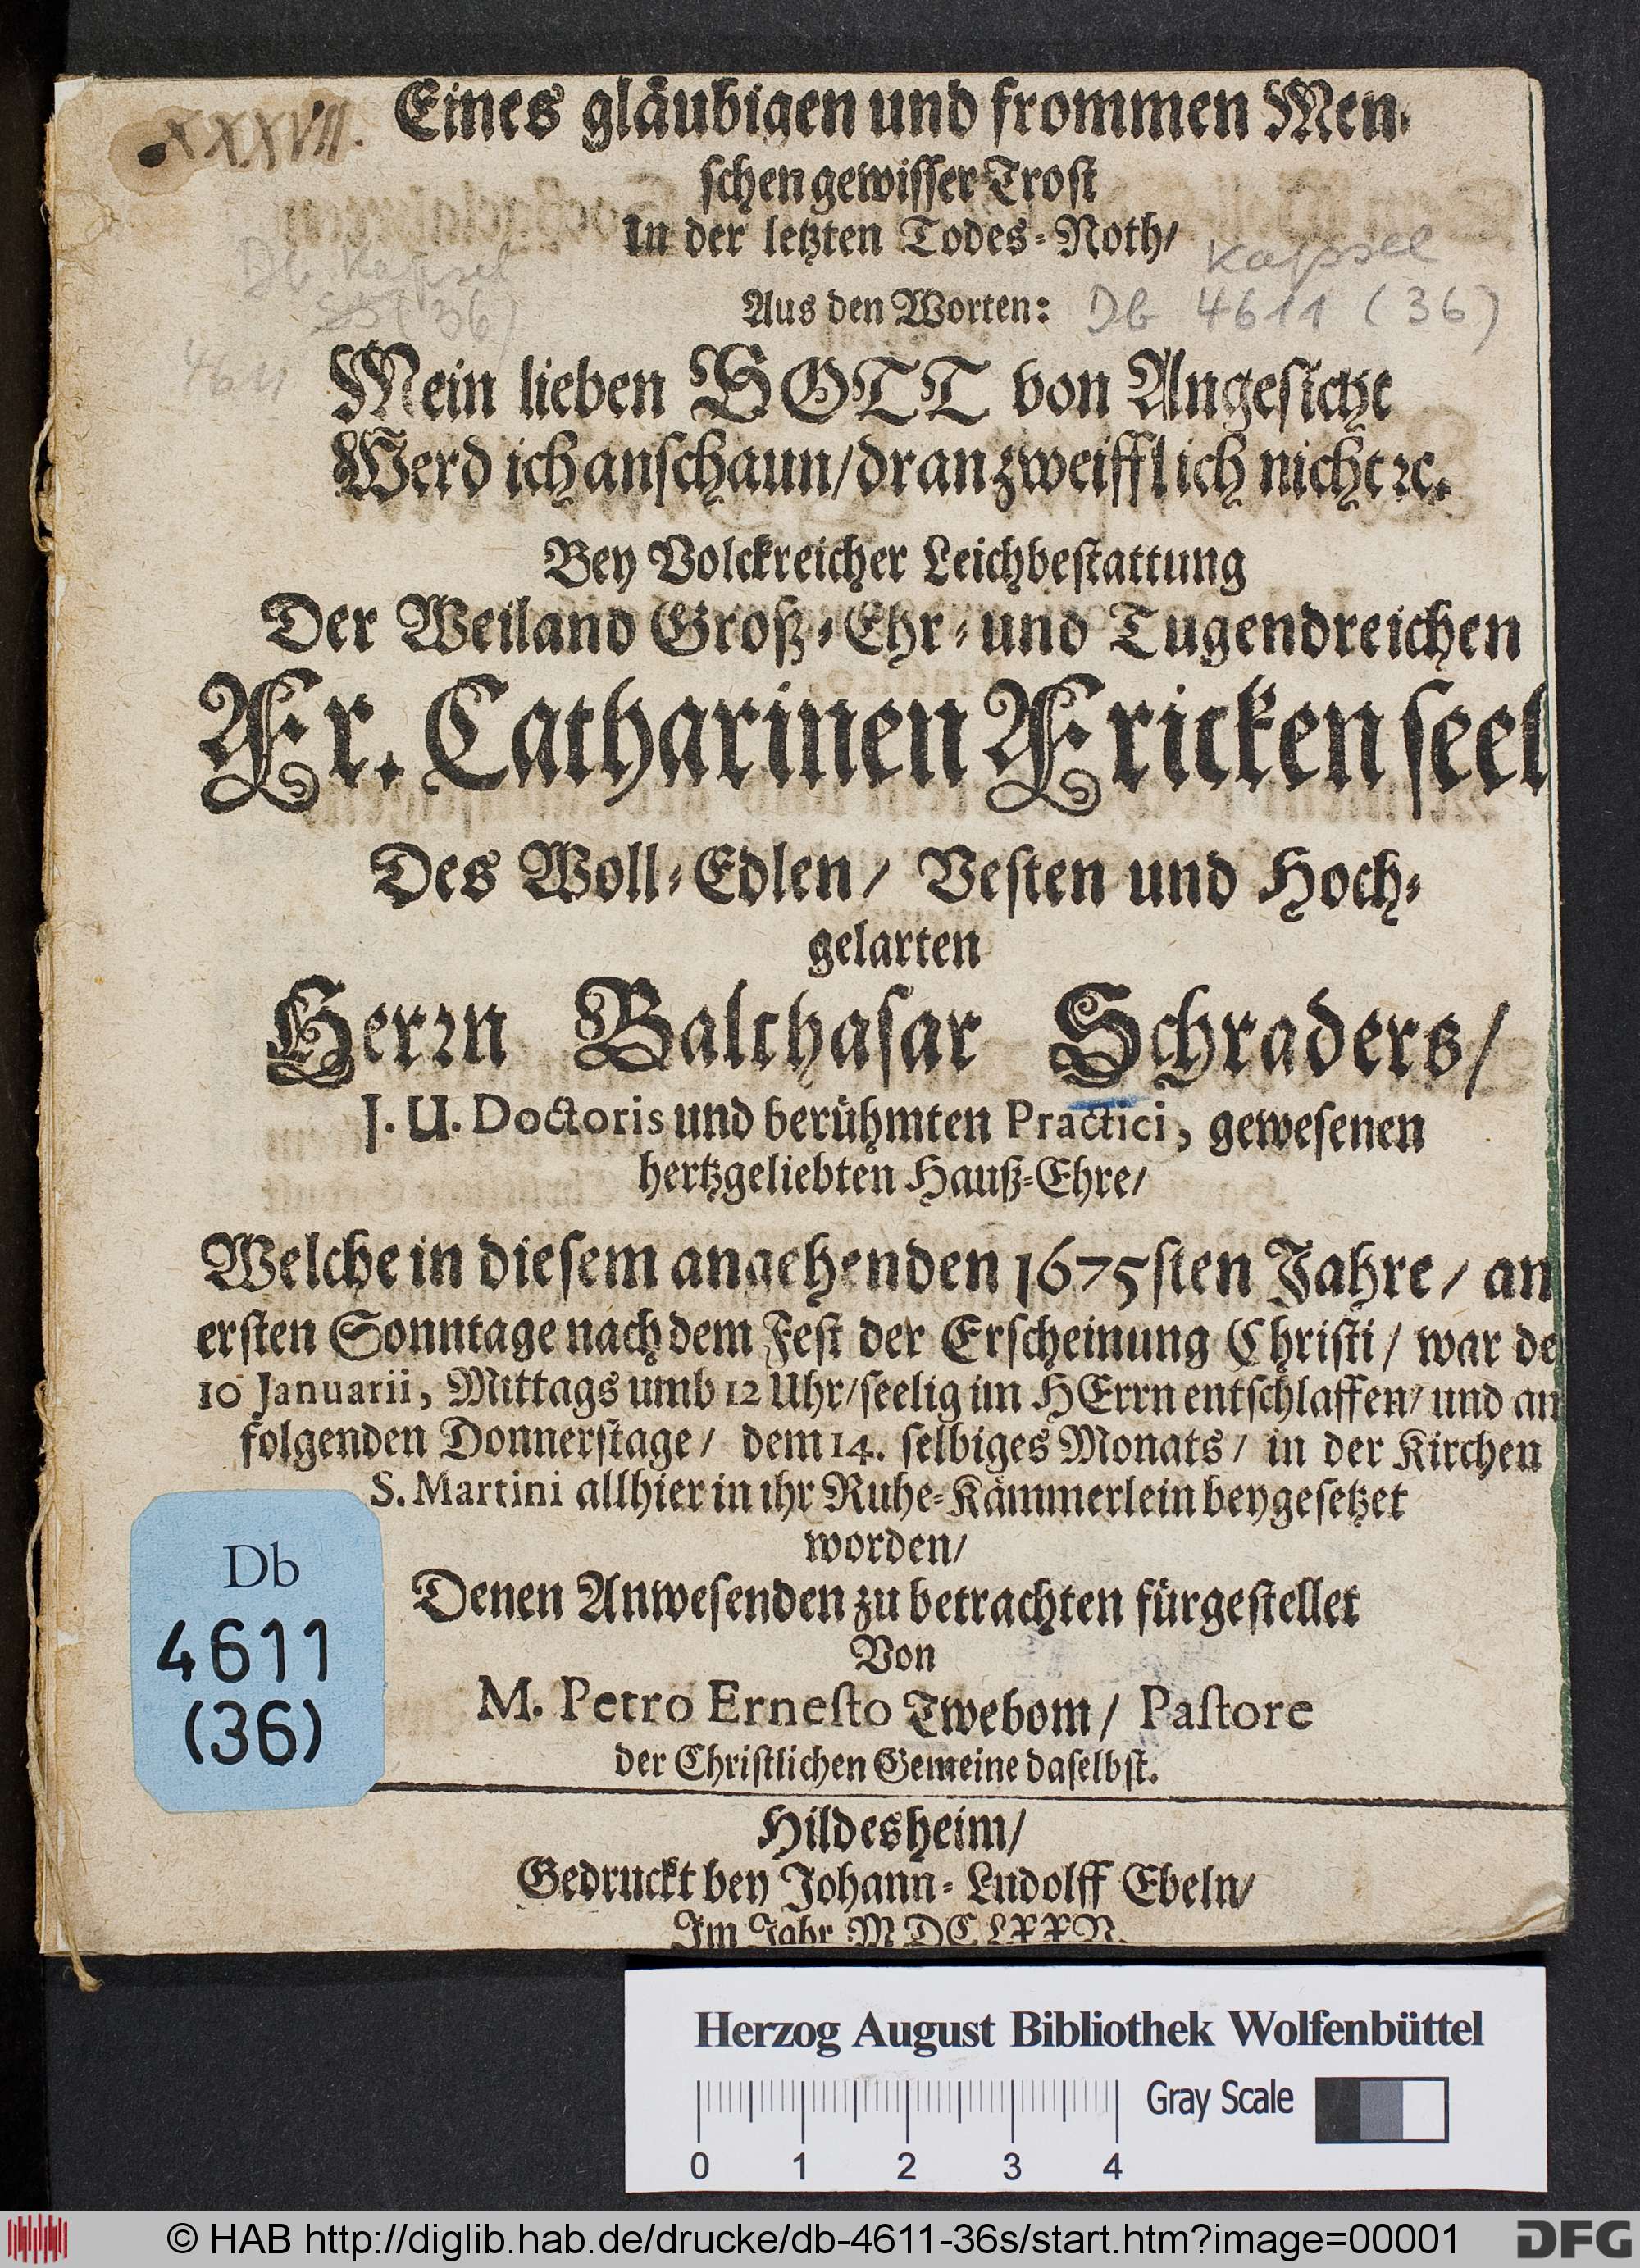 XXXVII.
Eines gläubigen und frommen Men-
schen gewisser Trost
In der letzten Todes-Noth/
Db Kapsel
55 (36)
4611
Kapsel
Aus den Worten: Db 4611 (36)
Mein lieben GOTT von Angesicht
Werd ich anschaun/dran zweifflich nicht ꝛc.
Bey Volckreicher Leichbestattung
Der Weiland Groß-Ehr-und Tugendreichen
Fr. Catharinen Fricken seel
Des Woll-Edlen/ Vesten und Hoch-
gelarten
Herꝛn Balthasar Schraders/
J. U. Doctoris und berühmten Practici, gewesenen
hertzgeliebten Hauß-Ehre/
Welche in diesem angehenden 1675sten Jahre/ an
ersten Sonntage nach dem Fest der Erscheinung Christi/ war de
10 Januarii, Mittags umb 12 Uhr/seelig im HErrn entschlaffen/ und an
folgenden Donnerstage/ dem 14. selbiges Monats/ in der Kirchen
S. Martini allhier in ihr Ruhe-Kämmerlein beygesetzet
worden/
Denen Anwesenden zu betrachten fürgestellet
Von
M. Petro Ernesto Twebom/ Pastore
der Christlichen Gemeine daselbst.
Hildesheim/
Gedruckt bey Johann-Ludolff Ebeln/
Im Jahr MDCLXXV.
Db
4611
(36)
Herzog August Bibliothek Wolfenbüttel
Gray Scale
0 1 2 3 4
© HAB http://diglib.hab.de/drucke/db-4611-36s/start.htm?image=00001
DFG